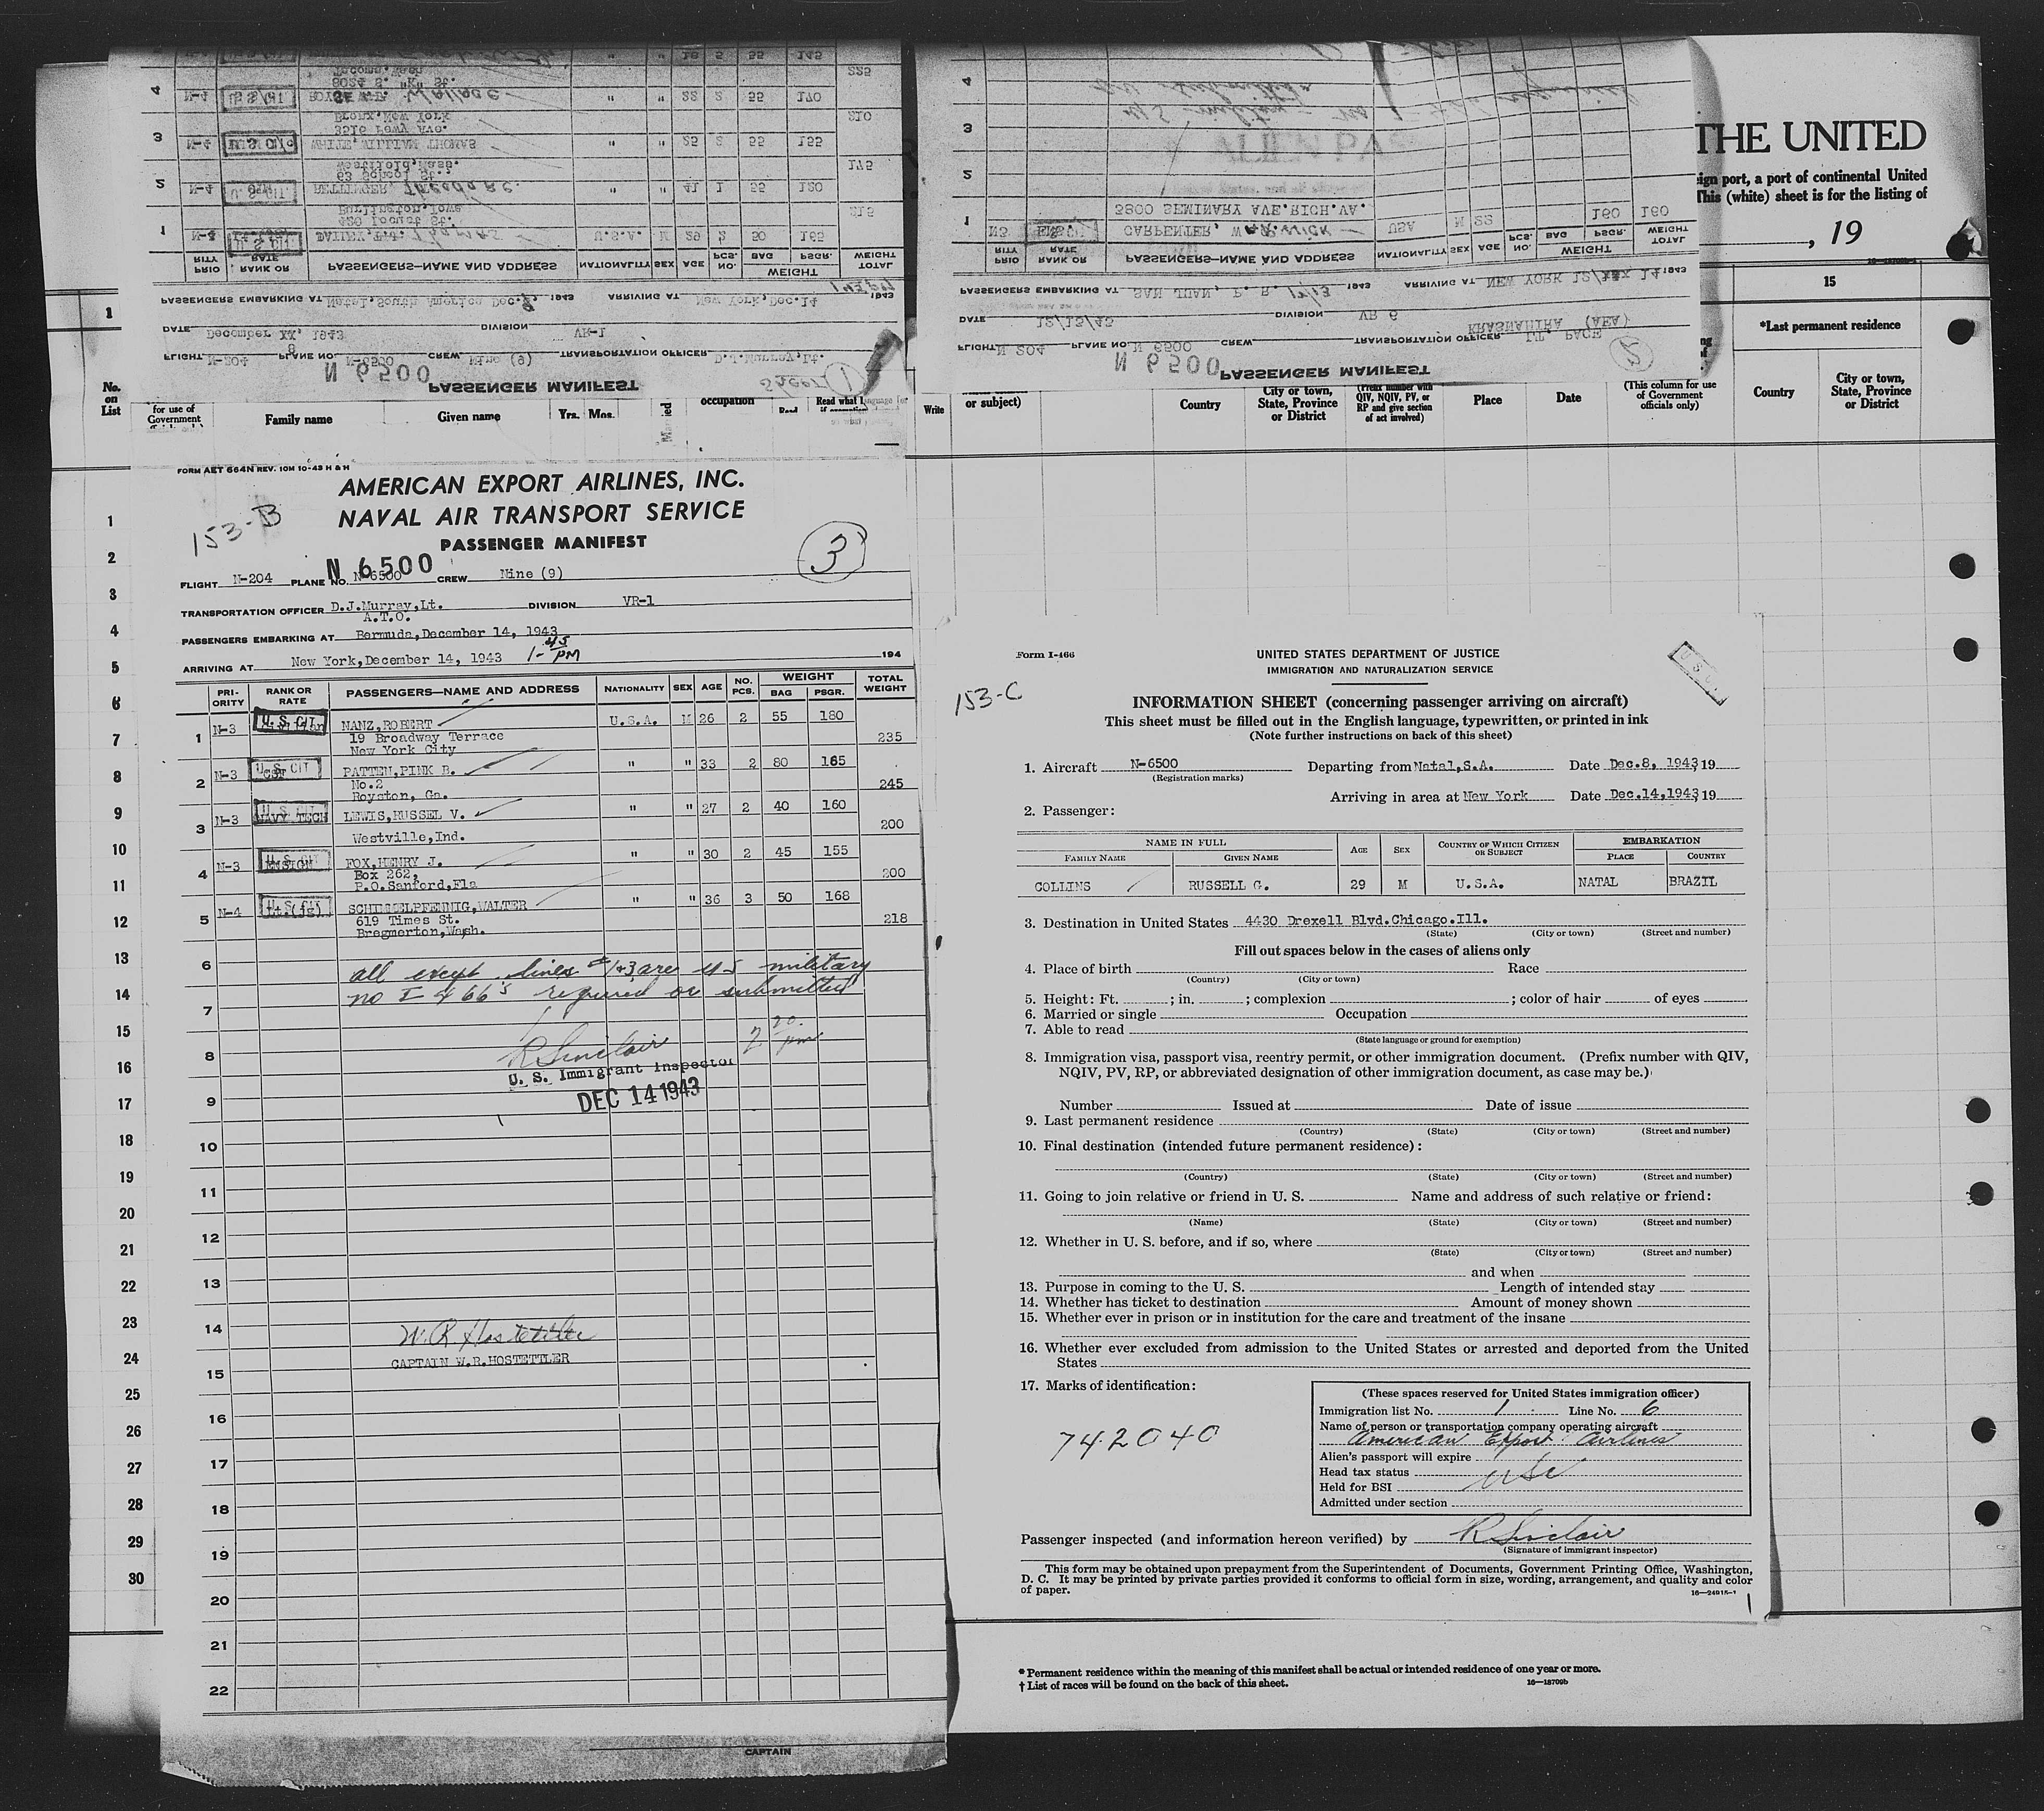 THE UNITED
ign port, a port of continental United
This (white) sheet is for the listing of
, 19
15
*Last permanent residence
No. on List
for use of Government
Family name
Given name
Yrs. Mos.
occupation
Read
Read what
Write
or subject)
Country
City or town, State, Province or District
QIV, NQIV, PV, or RP and give section of act involved)
Place
Date
(This column for use of Government officials only)
Country
City or town, State, Province or District
PASSENGER MANIFEST
N 6500
FLIGHT N-204 PLANE NO. N-6500 CREW Nine (9) TRANSPORTATION OFFICER D.J.Murray,Lt.
DATE December 1943 DIVISION VR-1
PASSENGERS EMBARKING AT Natal,South America Dec. 1943 ARRIVING AT New York,Dec.14 1943
PRIORITY RANK OR RATE PASSENGERS—NAME AND ADDRESS NATIONALITY SEX AGE NO. PCS. WEIGHT BAG PSGR. TOTAL WEIGHT
1 N-4 U.S.CIT. U.S.A. M 29 2 50 165
420 Locust St.
Burlington,Iowa 215
2 N-4 U.S.CIT. " " 41 1 55 120
63 School St.
Westfield,Mass. 175
3 N-4 WHITE,WILLIAM THOMAS " " 25 2 55 155
Bronx,New York 210
4 N-4 " " 22 2 55 170
8024 S. "K" St.
Tacoma,Wash 225
PASSENGER MANIFEST
N 6500
FLIGHT N 204 PLANE NO. N 6500 CREW TRANSPORTATION OFFICER LT. PACE
DATE DIVISION VR 6
PASSENGERS EMBARKING AT SAN JUAN, P. R. 12/13 1943 ARRIVING AT NEW YORK 12/ 14 1943
PRIORITY RANK OR RATE PASSENGERS—NAME AND ADDRESS NATIONALITY SEX AGE NO. PCS. BAG PSGR. WEIGHT TOTAL WEIGHT
1 N3 USA M 22 160 160
3800 SEMINARY AVE.RICH.VA.
2
3
4
FORM AET 664N REV. 10M 10-43 H & H
AMERICAN EXPORT AIRLINES, INC.
NAVAL AIR TRANSPORT SERVICE
PASSENGER MANIFEST
153-B
3
N 6500
FLIGHT N-204 PLANE NO. N-6500 CREW Nine (9)
TRANSPORTATION OFFICER D.J.Murray,Lt. DIVISION VR-1
A.T.O.
PASSENGERS EMBARKING AT Bermuda,December 14, 1943
ARRIVING AT New York,December 14, 1943 1-45 PM 194
PRIORITY RANK OR RATE PASSENGERS—NAME AND ADDRESS NATIONALITY SEX AGE NO. PCS. WEIGHT BAG PSGR. TOTAL WEIGHT
1 N-3 U.S.CIT. NANZ,ROBERT U.S.A. M 26 2 55 180
19 Broadway Terrace 235
New York City
2 N-3 U.S.CIT PATTEN,PINK B. " " 33 2 80 165
No.2 245
Royston, Ga.
3 N-3 NAVY TECH LEWIS,RUSSEL V. " " 27 2 40 160
Westville,Ind. 200
4 N-3 ENSIGN FOX,HENRY J. " " 30 2 45 155
Box 262, 200
P.O.Sanford,Fla
5 N-4 Lt.(jg) SCHIMMELPFENNIG,WALTER " " 36 3 50 168
619 Times St. 218
Bregmerton,Wash.
6 all except lines # 1+3 are US military
7 no I 466's required or submitted
8 R Sinclair 2 20 pm
U. S. Immigrant Inspector
9 DEC 14 1943
10
11
12
13
14 W.R Hostettler
CAPTAIN W.R.HOSTETTLER
15
16
17
18
19
20
21
22
CAPTAIN
1
1
2
3
4
5
6
7
8
9
10
11
12
13
14
15
16
17
18
19
20
21
22
23
24
25
26
27
28
29
30
Form I-466
UNITED STATES DEPARTMENT OF JUSTICE
IMMIGRATION AND NATURALIZATION SERVICE
153-C
INFORMATION SHEET (concerning passenger arriving on aircraft)
This sheet must be filled out in the English language, typewritten, or printed in ink
(Note further instructions on back of this sheet)
1. Aircraft N-6500 Departing from Natal,S.A. Date Dec.8, 1943, 19
(Registration marks)
Arriving in area at New York Date Dec.14,1943, 19
2. Passenger:
NAME IN FULL AGE SEX COUNTRY OF WHICH CITIZEN OR SUBJECT EMBARKATION
FAMILY NAME GIVEN NAME PLACE COUNTRY
COLLINS RUSSELL G. 29 M U.S.A. NATAL BRAZIL
3. Destination in United States 4430 Drexell Blvd.Chicago.Ill.
(State) (City or town) (Street and number)
Fill out spaces below in the cases of aliens only
4. Place of birth Race
(Country) (City or town)
5. Height: Ft. ; in. ; complexion ; color of hair of eyes
6. Married or single Occupation
7. Able to read
(State language or ground for exemption)
8. Immigration visa, passport visa, reentry permit, or other immigration document. (Prefix number with QIV,
NQIV, PV, RP, or abbreviated designation of other immigration document, as case may be.)
Number Issued at Date of issue
9. Last permanent residence
(Country) (State) (City or town) (Street and number)
10. Final destination (intended future permanent residence):
(Country) (State) (City or town) (Street and number)
11. Going to join relative or friend in U. S. Name and address of such relative or friend:
(Name) (State) (City or town) (Street and number)
12. Whether in U. S. before, and if so, where
(State) (City or town) (Street and number)
and when
13. Purpose in coming to the U. S. Length of intended stay
14. Whether has ticket to destination Amount of money shown
15. Whether ever in prison or in institution for the care and treatment of the insane
16. Whether ever excluded from admission to the United States or arrested and deported from the United
States
17. Marks of identification:
742040
(These spaces reserved for United States immigration officer)
Immigration list No. 1 Line No. 6
Name of person or transportation company operating aircraft
American Export Airlines
Alien's passport will expire
Head tax status USC
Held for BSI
Admitted under section
Passenger inspected (and information hereon verified) by R Sinclair
(Signature of immigrant inspector)
This form may be obtained upon prepayment from the Superintendent of Documents, Government Printing Office, Washington,
D. C. It may be printed by private parties provided it conforms to official form in size, wording, arrangement, and quality and color
of paper.
16—24915-1
* Permanent residence within the meaning of this manifest shall be actual or intended residence of one year or more.
† List of races will be found on the back of this sheet.
16—18709b